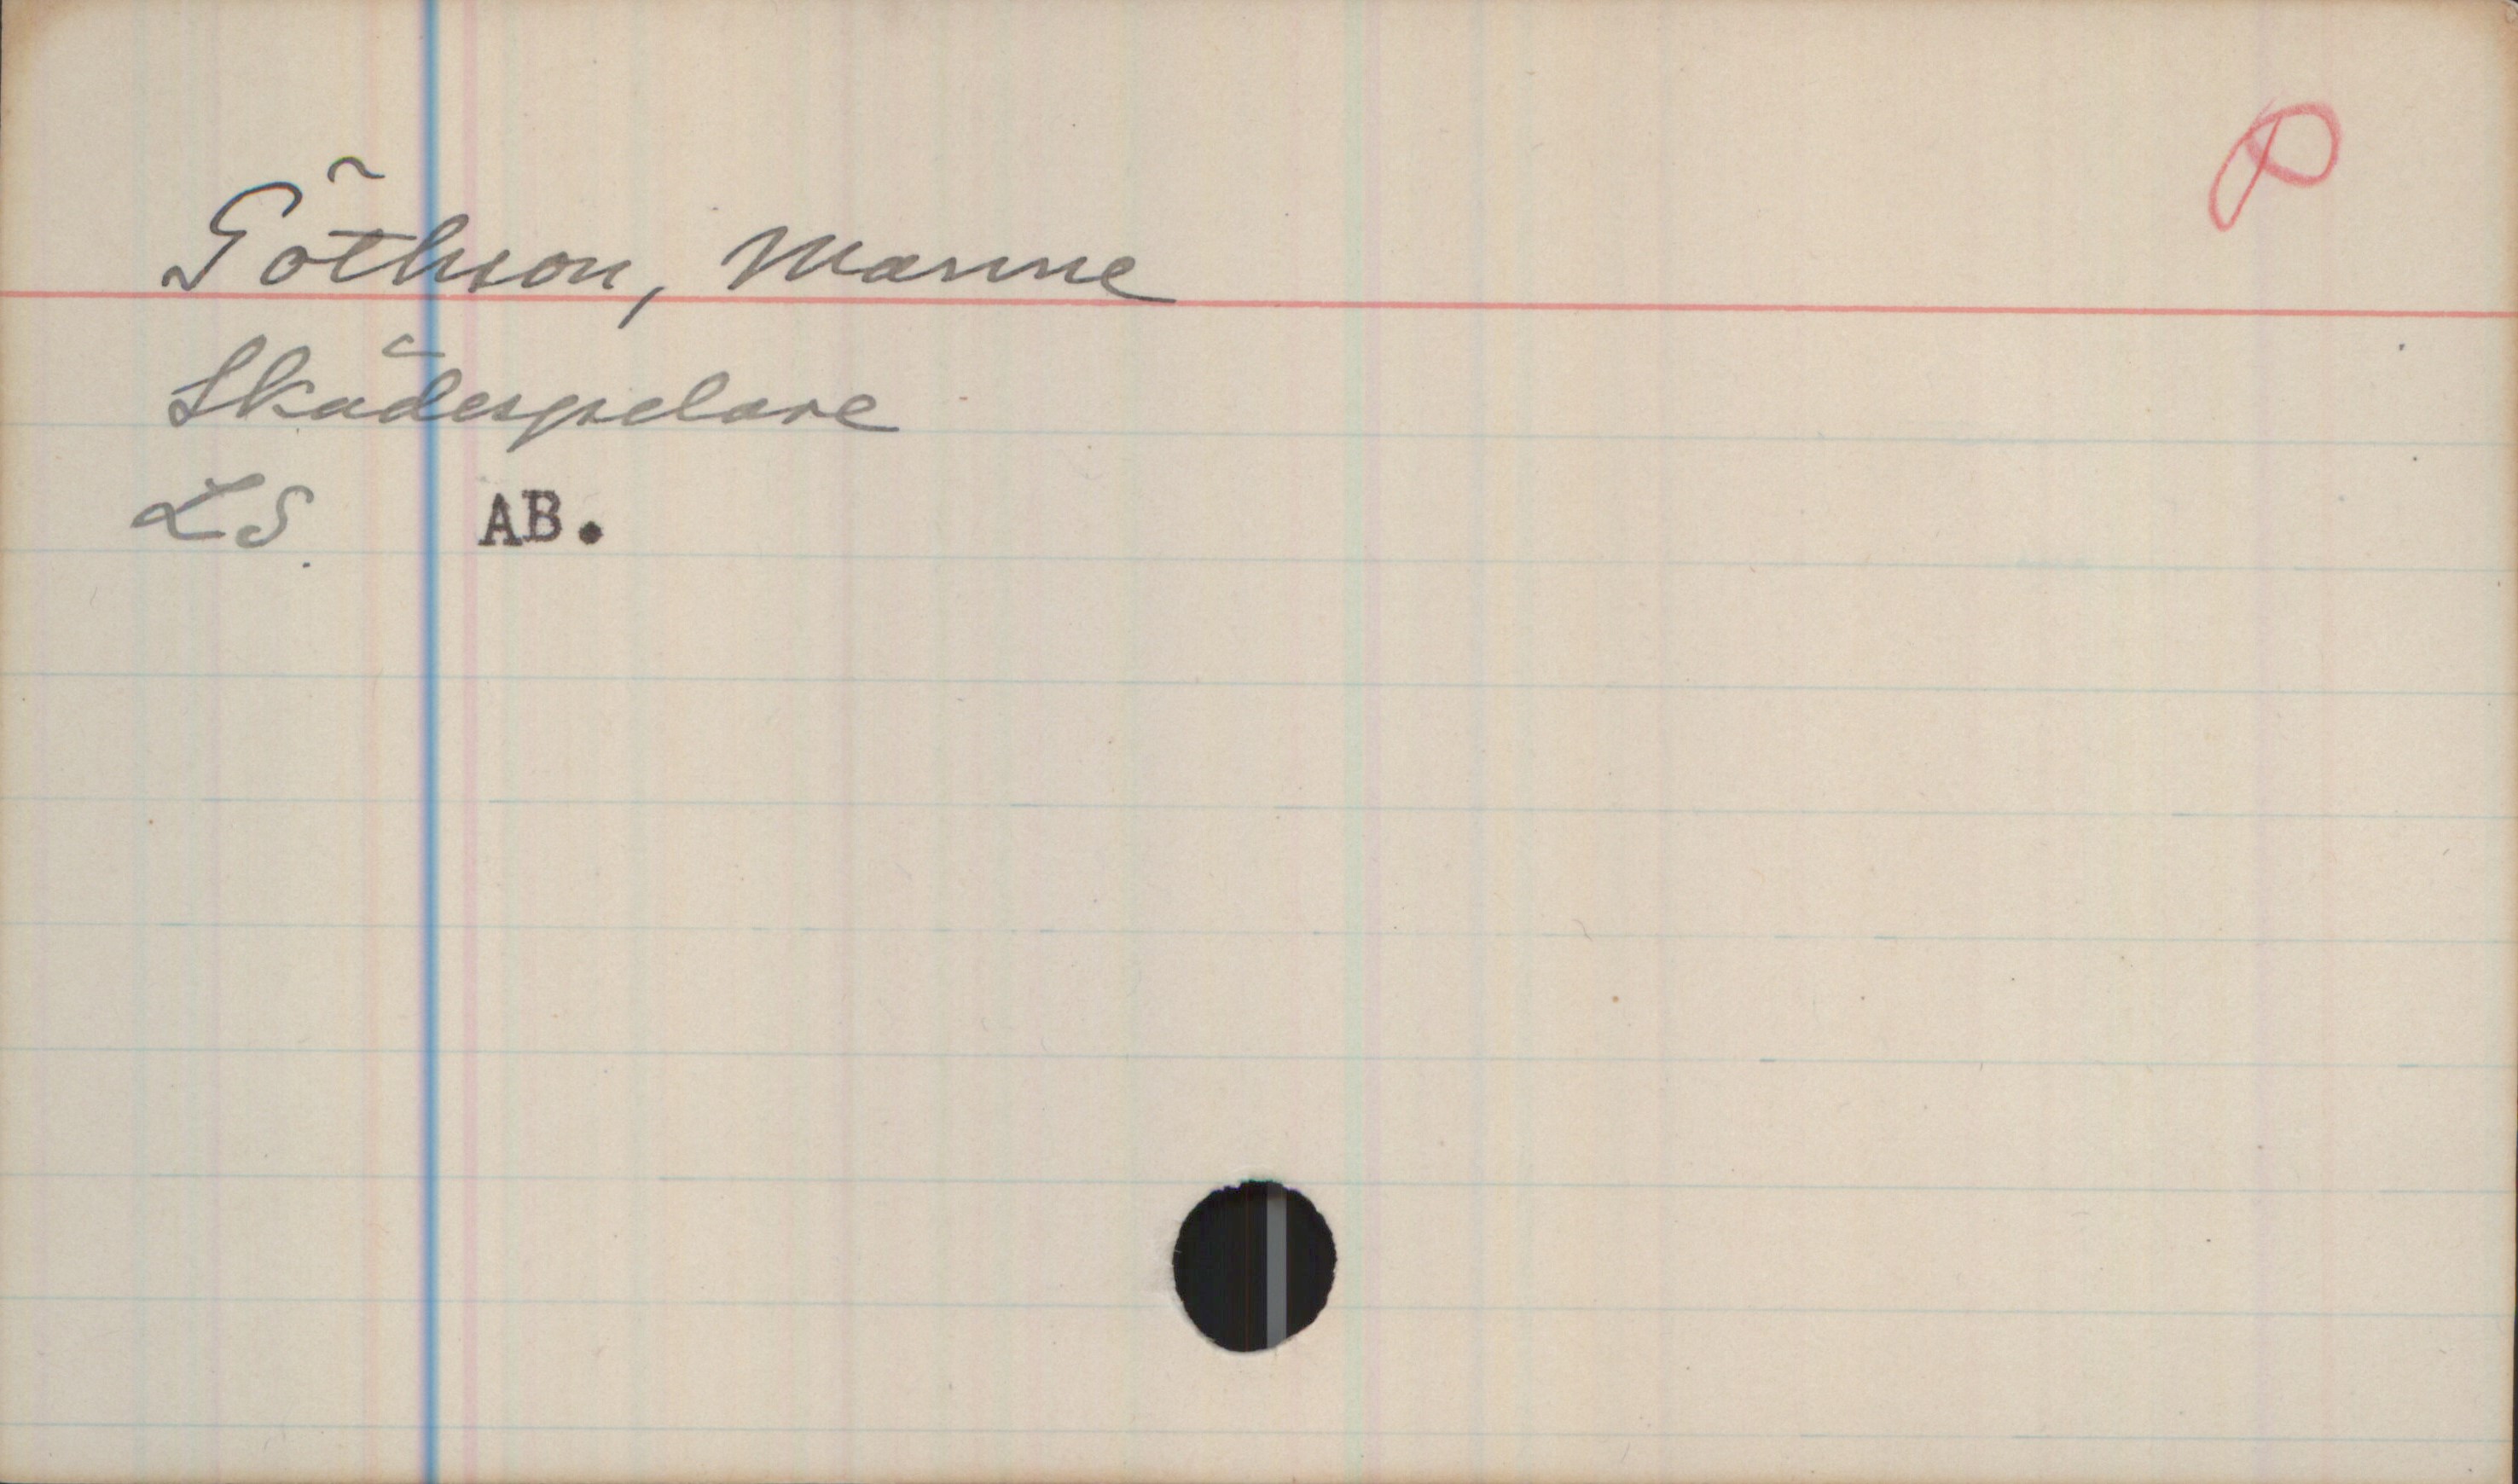 Göthson, Manne
Skådespelare
LS. AB.